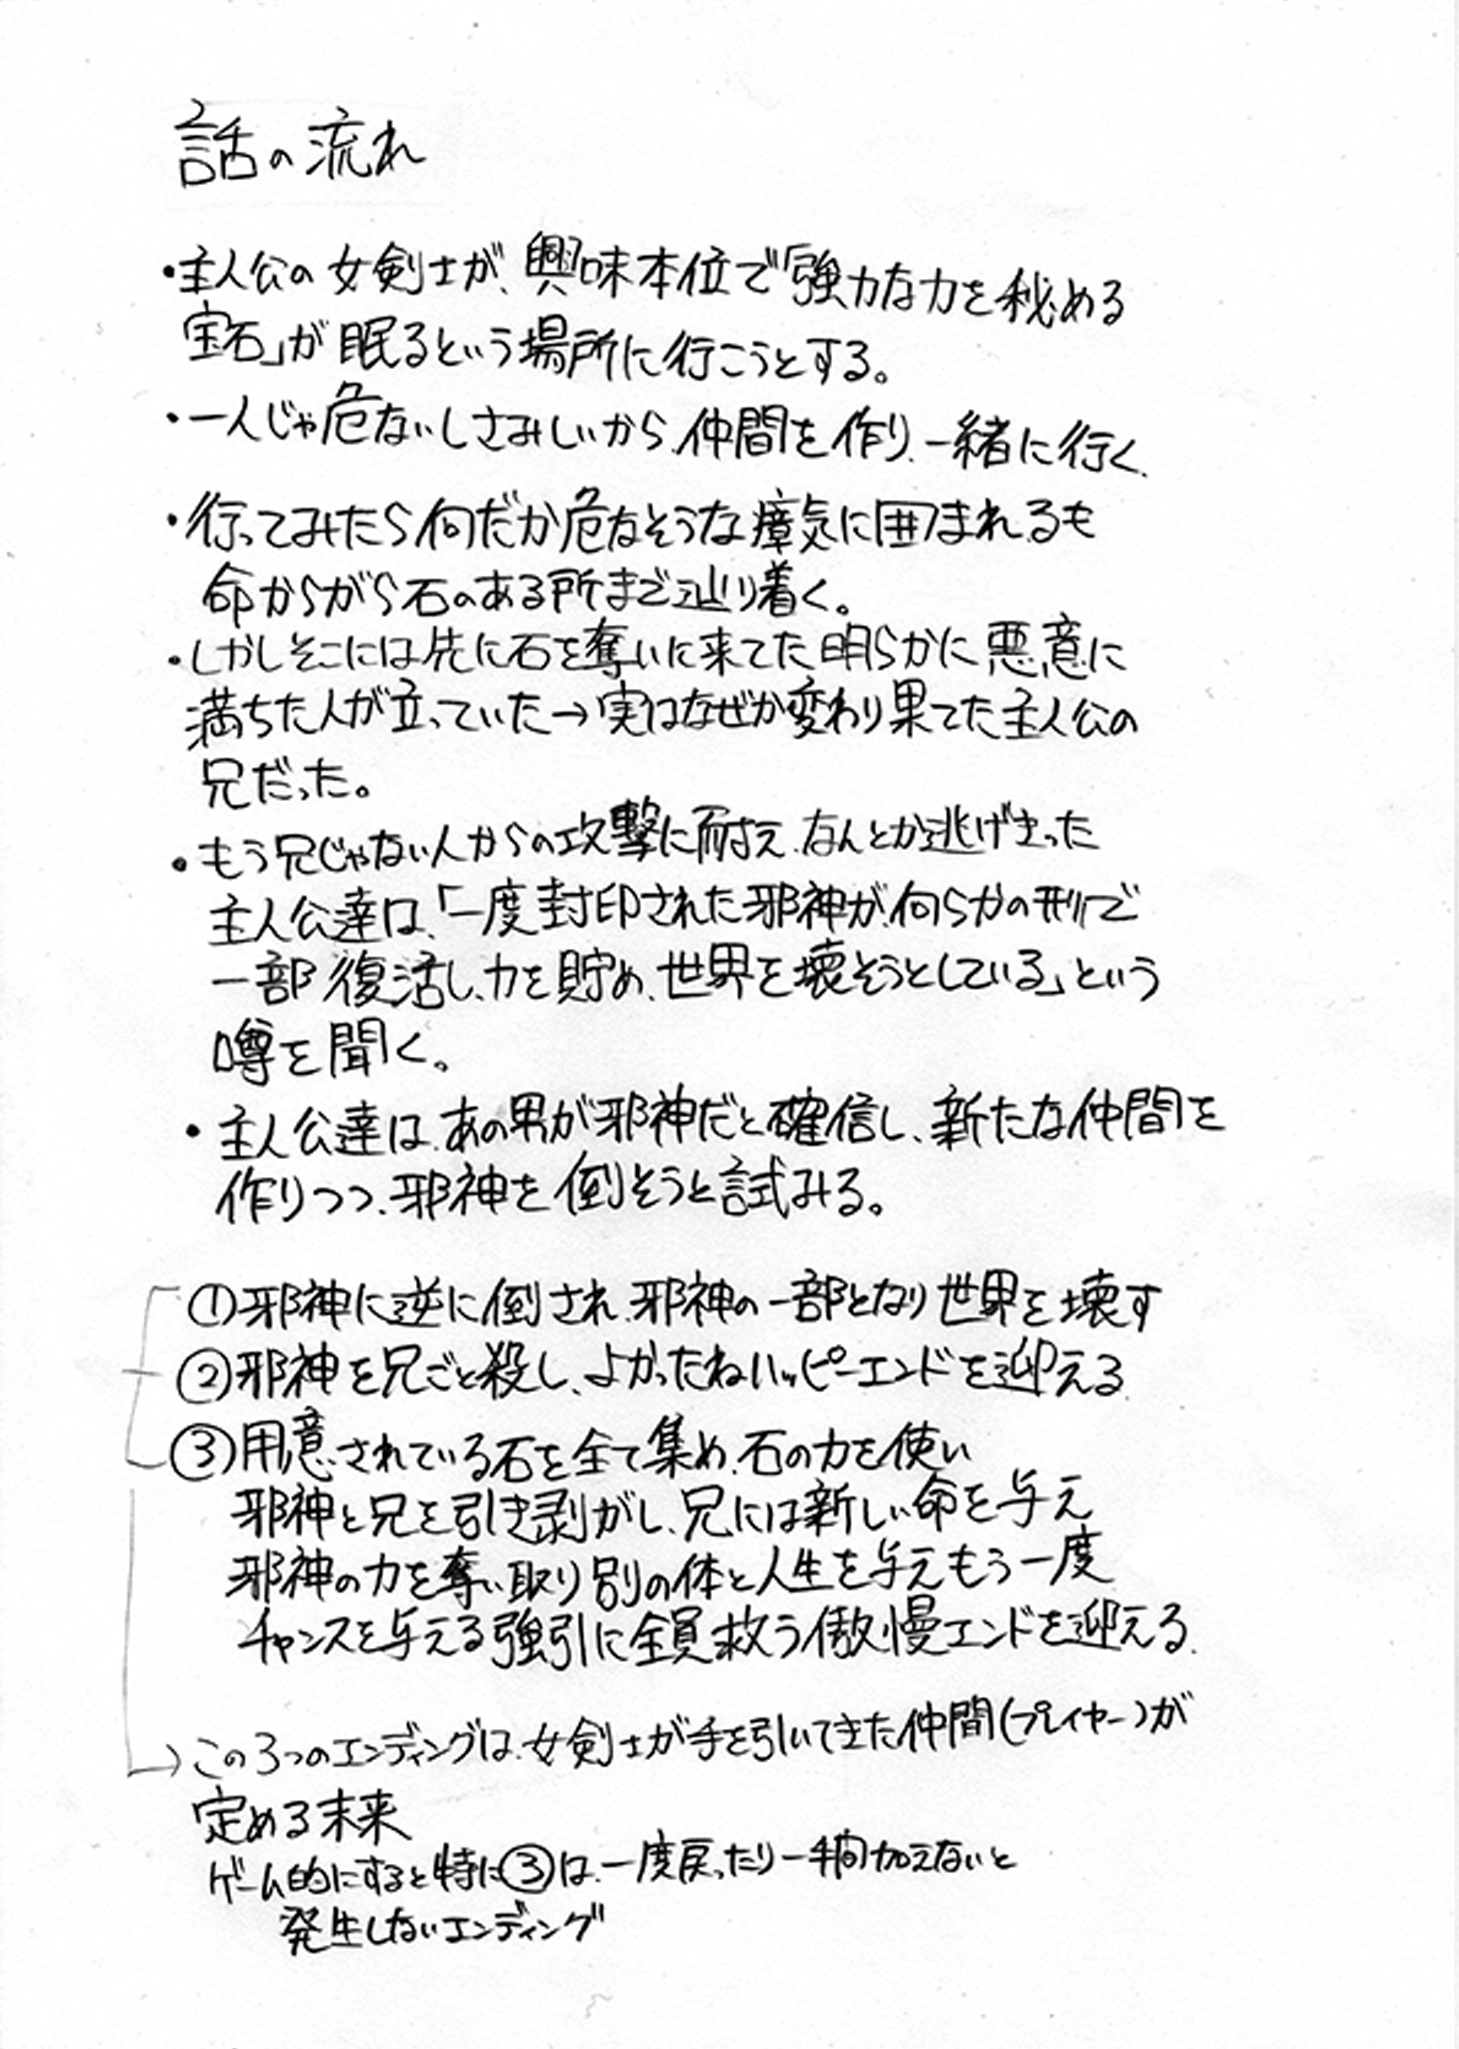 話の流れ
・主人公の女剣士が、興味本位で「強力な力を秘める
宝石」が眠るという場所に行こうとする。
・一人じゃ危ないしさみしいから、仲間を作り、一緒に行く、
・行ってみたら何だか危なそうな瘴気に囲まれるも
命からがら石のある所まで辿り着く。
・しかしそこには先に石を奪いに来てた明らかに悪意に
満ちた人が立っていた→実はなぜか変わり果てた主人公の
兄だった。
・もう兄じゃない人からの攻撃に耐え、なんとか逃げきった
主人公達は、「一度封印された邪神が、何らかの形で
一部復活し、力を貯め、世界を壊そうとしている」という
噂を聞く。
・主人公達は、あの男が邪神だと確信し、新たな仲間を
作りつつ、邪神を倒そうと試みる。
①邪神に逆に倒され、邪神の一部となり世界を壊す
②邪神を兄ごと殺し、よかったねハッピーエンドを迎える
③用意されている石を全て集め、石の力を使い
邪神と兄を引き剥がし、兄には新しい命を与え
邪神の力を奪い取り別の体と人生を与えもう一度
チャンスを与える強引に全員救う傲慢エンドを迎える、
→この3つのエンディングは、女剣士が手を引いてきた仲間(プレイヤー)が
定める未来
ゲーム的にすると特に③は、一度戻ったり一手間加えないと
発生しないエンディング